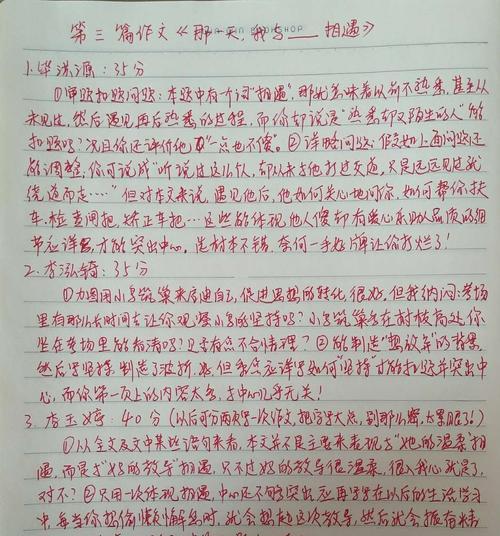 第三篇作文《那一天,我与___相遇》
1.毕洪源:35分
①审题扣题问题:本题中有一个词"相遇",那就意味着以前不熟悉,甚至从
未见过,然后遇见再后熟悉的过程,而你却说是"熟悉却又陌生的人"能
扣题吗?况且你还评价他又"一点也不傻。②详略问题:假如上面问题还
能调整,你可说成"听说过这么个人,却从未与他打过交道,只是远远见过就
绕道而走……"但对本文来说,遇见他后,他如何关心地问你,如何帮你扶
车、检查闸把、矫正车把……这些能体现他人傻却有爱心乐助人品质的细
节应详写才能突出中心。选材本不错,奈何一手好牌让你打烂了!
2.李泓锜:35分
①力图用小鸟筑巢来启迪自己,促进思想的转化,很好。但我纳闷:考场
里有那么长时间去让你观察小鸟的坚持吗?小鸟筑巢多在树枝高处,你
坐在考场里能看清吗?是否有点不合情理?②能制造"想放弃"的背景
然后坚持,制造了波折,好。但重点应详写如何"坚持"才能扣题并突出中
心,而你第一页上的内容太多,与中心几乎无关!
3.李玉婷:40分(以后可分两页写一次作文,把字写大点,别那么密,太累眼了!)
①从全文及文中某些语句来看,本文并不是主要来表现与"她的温柔"相
遇,而是与"她的教导"相遇,只不过她的教导很温柔,很入我心就是了,
对不?②只用一次体现相遇,中心还不够突出,应再写写在以后的生活学习
中,每当你想偷懒懈怠时,就会想起这次教导,然后就会振奋精